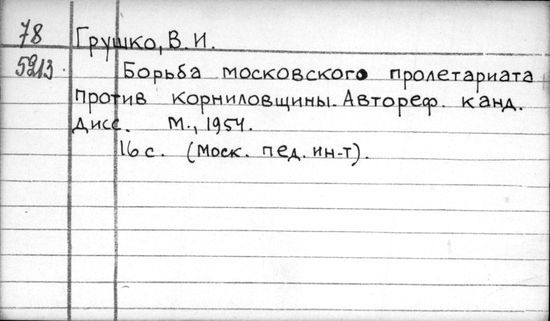 78 Грушко, В. И.
5213. Борьба московского пролетариата
против корниловщины. Автореф. канд.
дисс. М., 1954.
16 с. (Моск. пед. ин-т).